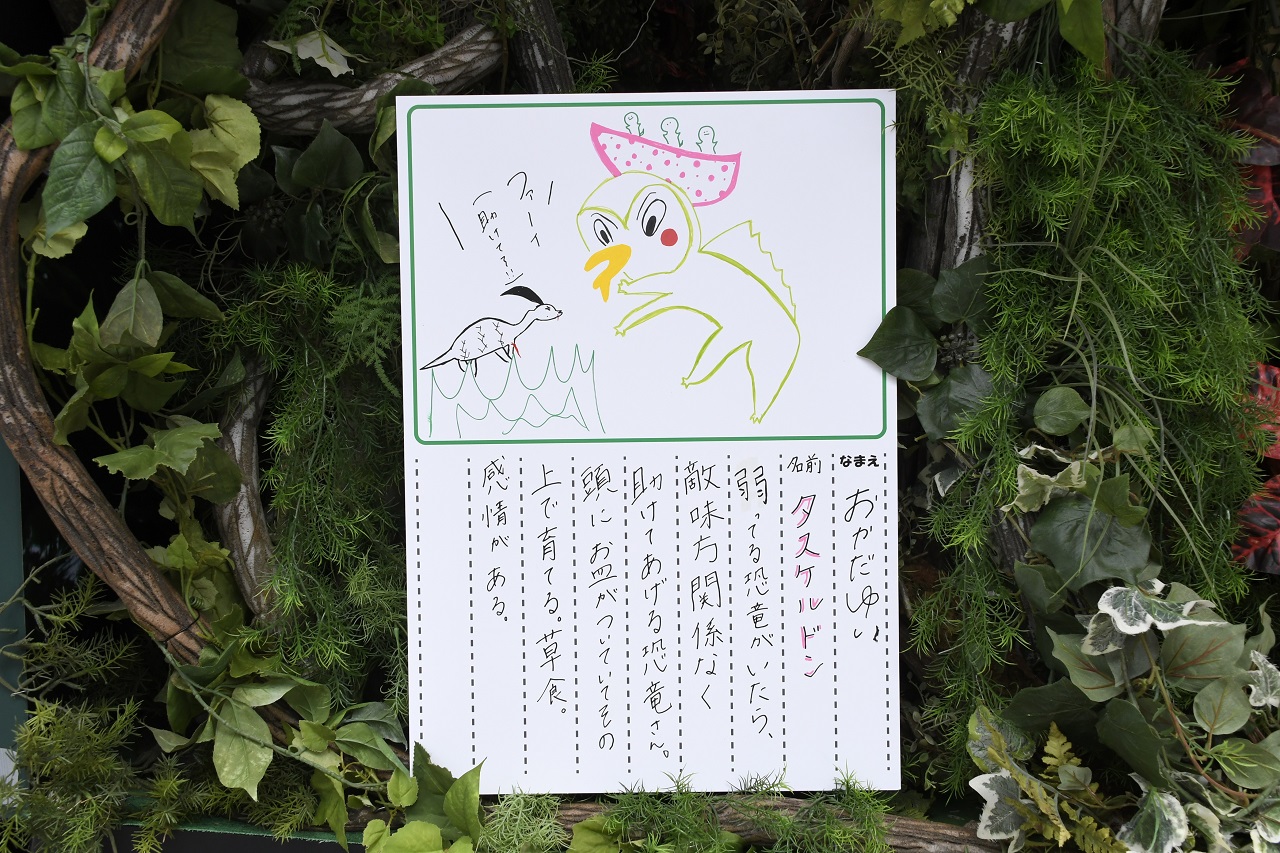 ファーイ
助けてネ!!
なまえ おかだゆい
名前 タスケルドン
弱ってる恐竜がいたら、
敵味方関係なく
助けてあげる恐竜さん。
頭にお皿がついていてその
上で育てる。草食。
感情がある。